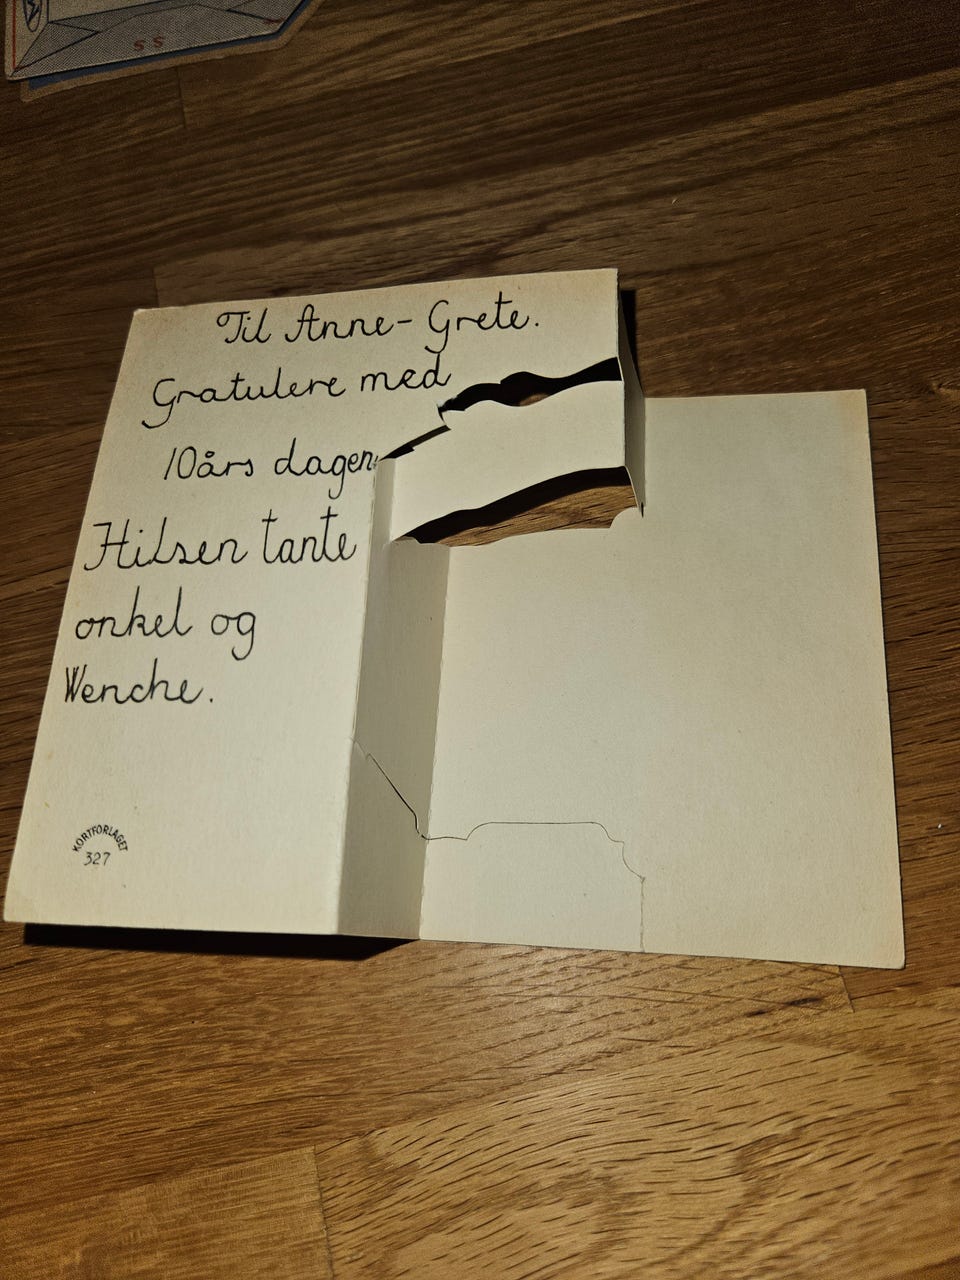 Til Anne-Grete.
Gratulere med
10års dagen
Hilsen tante
onkel og
Wenche.
KORTFORLAGET
327